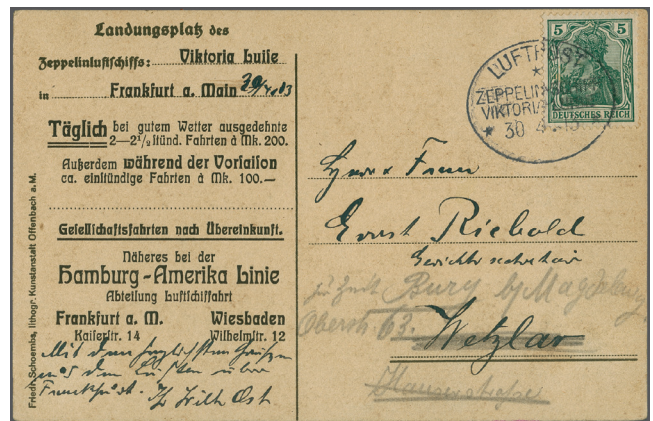 Landungsplatz des
Zeppelinluftschiffs: Viktoria Luise
in Frankfurt a. Main 30/4.13
Täglich bei gutem Wetter ausgedehnte
2—2½stünd. Fahrten à Mk. 200.
Außerdem während der Vorsaison
ca. einstündige Fahrten à Mk. 100.—
Gesellschaftsfahrten nach Übereinkunft.
Näheres bei der
Hamburg-Amerika Linie
Abteilung Luftschiffahrt
Frankfurt a. M. Wiesbaden
Kaiserstr. 14 Wilhelmstr. 12
Mit den herzlichsten Grüßen
aus den Lüften über
Frankfurt. Wilh Ost
Friedr. Schoembs, lithogr. Kunstanstalt Offenbach a. M.
5 5
DEUTSCHES REICH
LUFTPOST
ZEPPELIN
VIKTORIA
30 4 13
Herrn & Frau
Ernst Riebold
Gerichtssecretair
zur Zeit Burg b/Magdeburg
Oberstr. 63.
Wetzlar
Hausertstraße